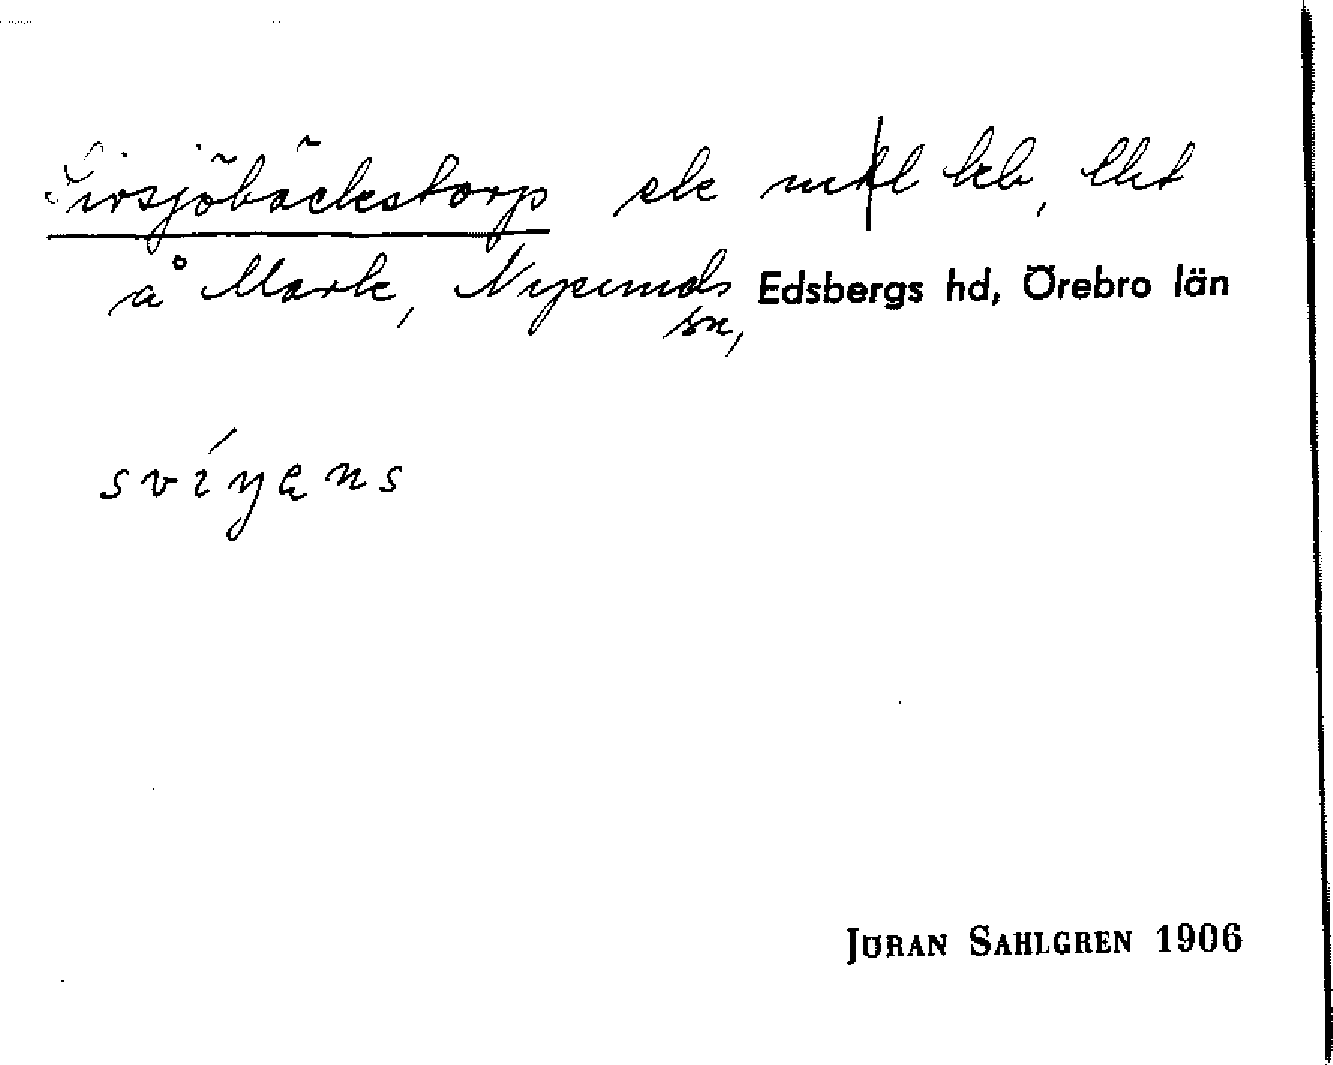 Sirsjöbäckstorp ek mtl kb, lht
å Mark, Nysunds Edsbergs hd, Örebro län
sn,
svíyens
JÖRAN SAHLGREN 1906